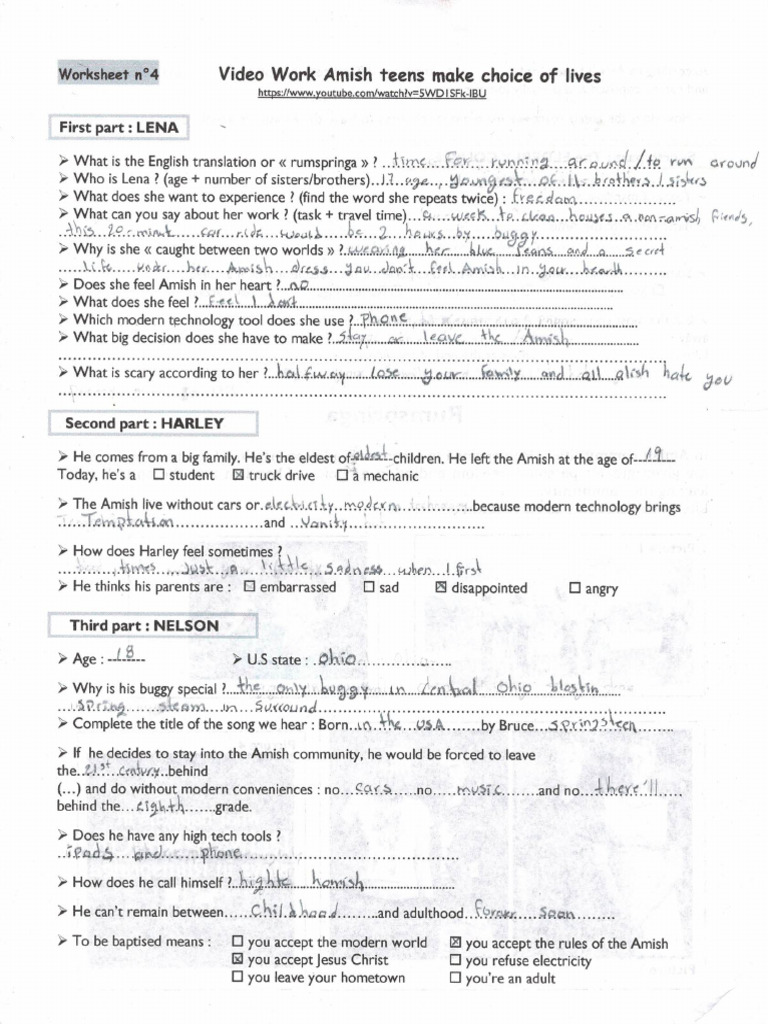 Worksheet n°4 Video Work Amish teens make choice of lives
https://www.youtube.com/watch?v=5WD1SFk-IBU
First part : LENA
➢ What is the English translation or « rumspringa » ? time for running around / to run around
➢ Who is Lena ? (age + number of sisters/brothers) 17 age, youngest of 11 brothers / sisters
➢ What does she want to experience ? (find the word she repeats twice) : freedom
➢ What can you say about her work ? (task + travel time) a week to clean houses a non-amish friends,
this 20-minut car ride would be 2 hours by buggy
➢ Why is she « caught between two worlds » ? wearing her blue jeans and a secret
life under her Amish dress you don't feel Amish in your
➢ Does she feel Amish in her heart ? no
➢ What does she feel ? Feel I don't
➢ Which modern technology tool does she use ? Phone
➢ What big decision does she have to make ? stay or leave the Amish
➢ What is scary according to her ? halfway lose your family and all alish hate you
Second part : HARLEY
➢ He comes from a big family. He's the eldest of eldest children. He left the Amish at the age of 19
Today, he's a ☐ student ☒ truck drive ☐ a mechanic
➢ The Amish live without cars or electricity modern because modern technology brings
Temptation and Vanity
➢ How does Harley feel sometimes ?
times just a little sadness when I first
➢ He thinks his parents are : ☐ embarrassed ☐ sad ☒ disappointed ☐ angry
Third part : NELSON
➢ Age : 18 ➢ U.S state : ohio
➢ Why is his buggy special ? the only buggy in central Ohio blostin
spring steam in Surround
➢ Complete the title of the song we hear : Born in the USA by Bruce springsteen
➢ If he decides to stay into the Amish community, he would be forced to leave
the 21st century behind
(…) and do without modern conveniences : no cars no music and no there'll
behind the eighth grade.
➢ Does he have any high tech tools ?
ipads and phone
➢ How does he call himself ? highte homish
➢ He can't remain between childhood and adulthood soon
➢ To be baptised means : ☐ you accept the modern world ☒ you accept the rules of the Amish
☒ you accept Jesus Christ ☐ you refuse electricity
☐ you leave your hometown ☐ you're an adult